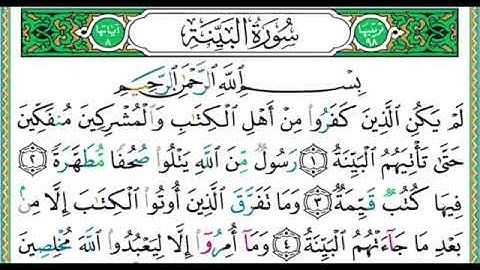 ترتيبها ٩٨ سُورَةُ الْبَيِّنَةِ آياتها ٨
بِسْمِ اللَّهِ الرَّحْمَنِ الرَّحِيمِ
لَمْ يَكُنِ الَّذِينَ كَفَرُوا مِنْ أَهْلِ الْكِتَابِ وَالْمُشْرِكِينَ مُنفَكِّينَ
حَتَّى تَأْتِيَهُمُ الْبَيِّنَةُ ١ رَسُولٌ مِّنَ اللَّهِ يَتْلُوا صُحُفًا مُّطَهَّرَةً ٢
فِيهَا كُتُبٌ قَيِّمَةٌ ٣ وَمَا تَفَرَّقَ الَّذِينَ أُوتُوا الْكِتَابَ إِلَّا مِنْ
بَعْدِ مَا جَاءَتْهُمُ الْبَيِّنَةُ ٤ وَمَا أُمِرُوا إِلَّا لِيَعْبُدُوا اللَّهَ مُخْلِصِينَ